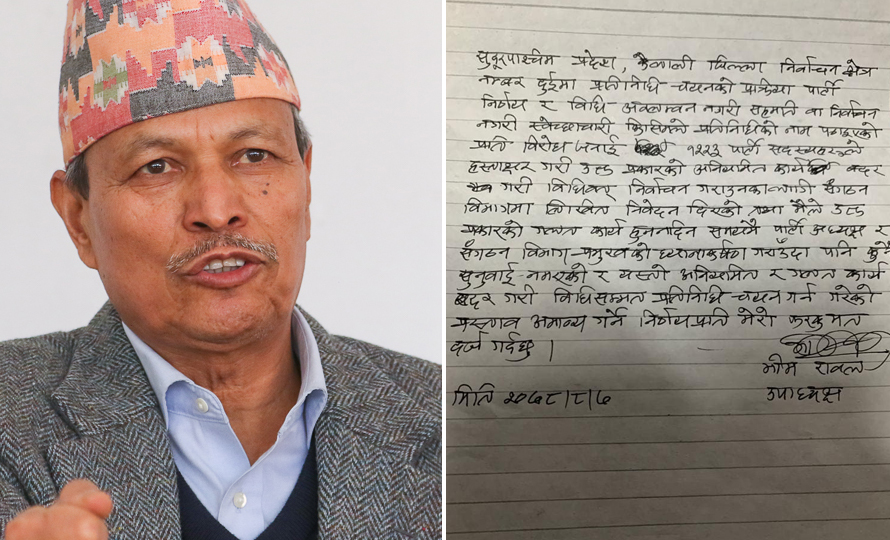 सुदूरपाश्चिम प्रदेश, कैलाली जिल्ला निर्वाचन क्षेत्र
नम्बर दुईमा प्रतिनिधि चयनको प्रक्रिया पार्टी
निर्णय र विधि अवलम्बन नगरी सहमति वा निर्वाचन
नगरी स्वेच्छाचारी किसिमले प्रतिनिधिको नाम पठाइएको
प्रति विरोध जनाई १२२३ पार्टी सदस्यहरूले
हस्ताक्षर गरी उक्त प्रकारको अनियमित कार्य बदर
गरी विधिवत् निर्वाचन गराउनकालागि संगठन
विभागमा लिखित निवेदन दिएको तथा मैले उक्त
प्रकारको गलत कार्य हुननदिन समयमै पार्टी अध्यक्ष र
संगठन विभाग प्रमुखको ध्यानाकर्षण गराउँदा पनि कुनै
सुनुवाई नगरेको र यस्तो अनियमित र गलत कार्य
बदर गरी विधिसम्मत प्रतिनिधि चयन गर्न गरेको
प्रस्ताव अमान्य गर्ने निर्णयप्रति मेरो फरक मत
दर्ज गर्दछु ।
भीम रावल
मिति २०७८।८।७ उपाध्यक्ष